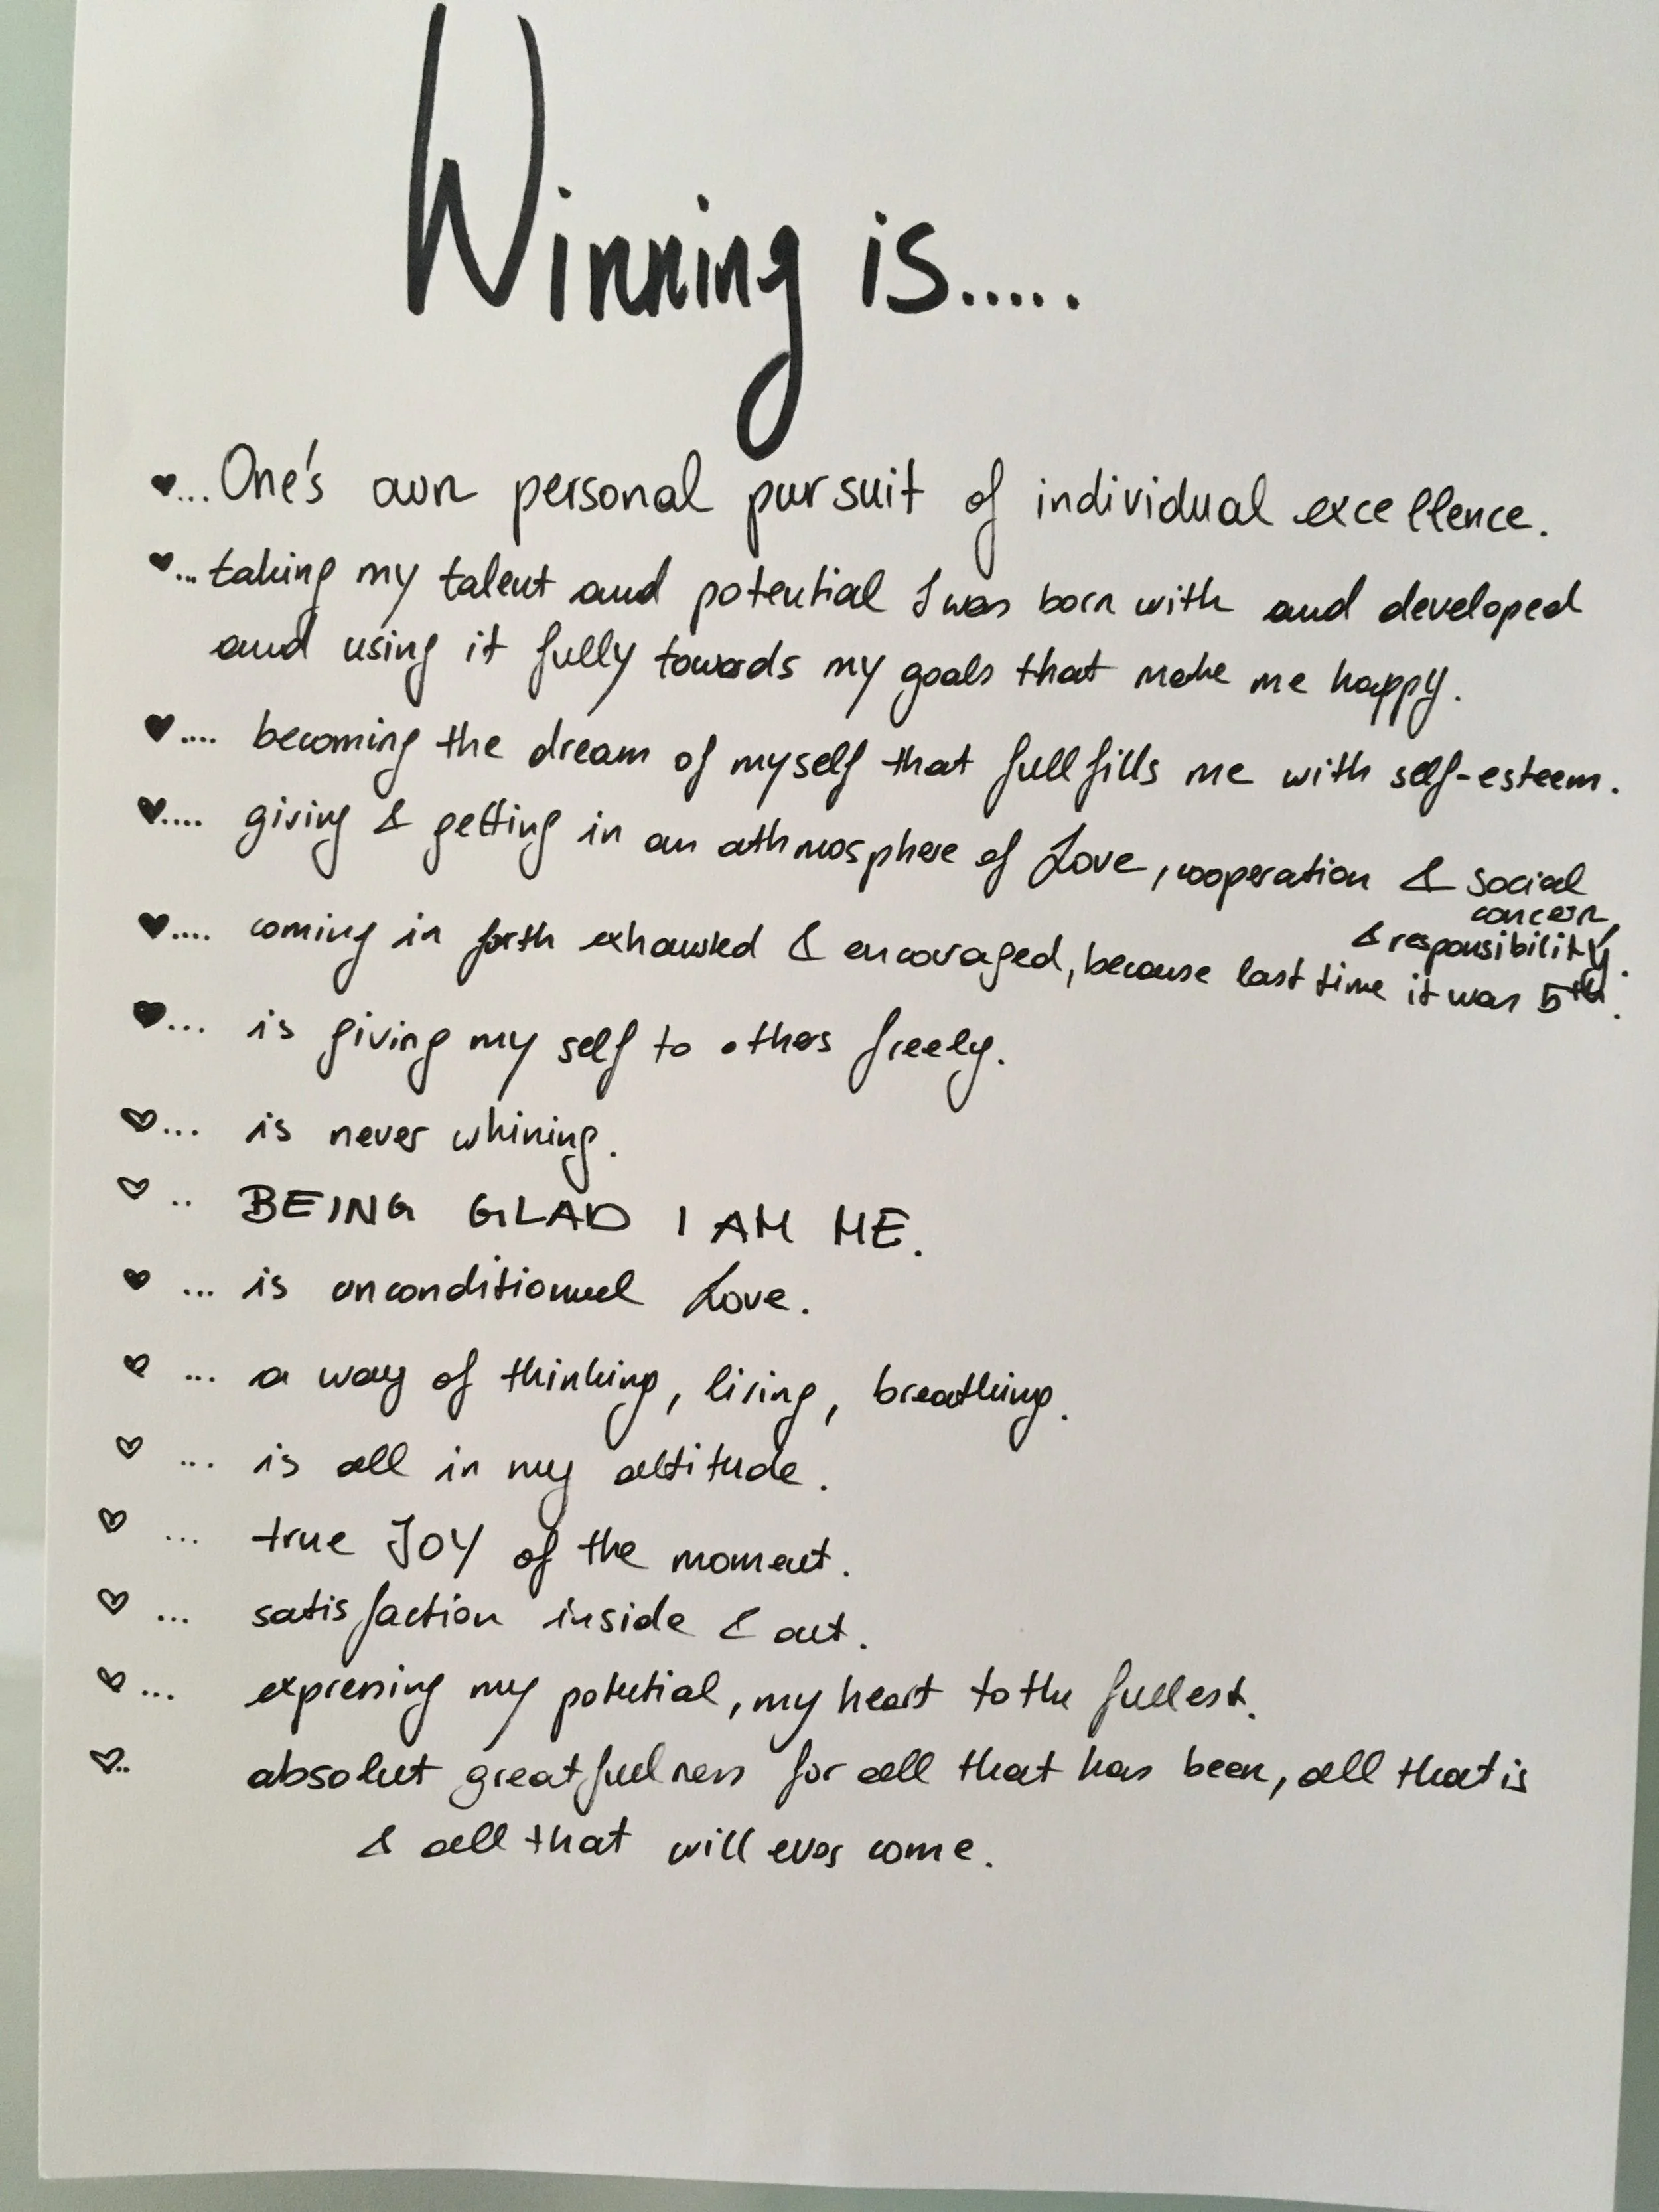 Winning is.....
♥...One's own personal pursuit of individual excellence.
♥...taking my talent and potential I was born with and developed
and using it fully towards my goals that make me happy.
♥.... becoming the dream of myself that fullfills me with self-esteem.
♥.... giving & getting in an athmosphere of Love, cooperation & social
concern,
& responsibility.
♥.... coming in forth exhausted & encouraged, because last time it was 5th.
♥... is giving my self to others freely.
♡... is never whining.
♡.. BEING GLAD I AM ME.
♥... is unconditionnel Love.
♡... a way of thinking, living, breathing.
♡... is all in my attitude.
♡... true JOY of the moment.
♡... satisfaction inside & out.
♡... expressing my potential, my heart to the fullest.
♡.. absolut greatfullness for all that has been, all that is
& all that will ever come.